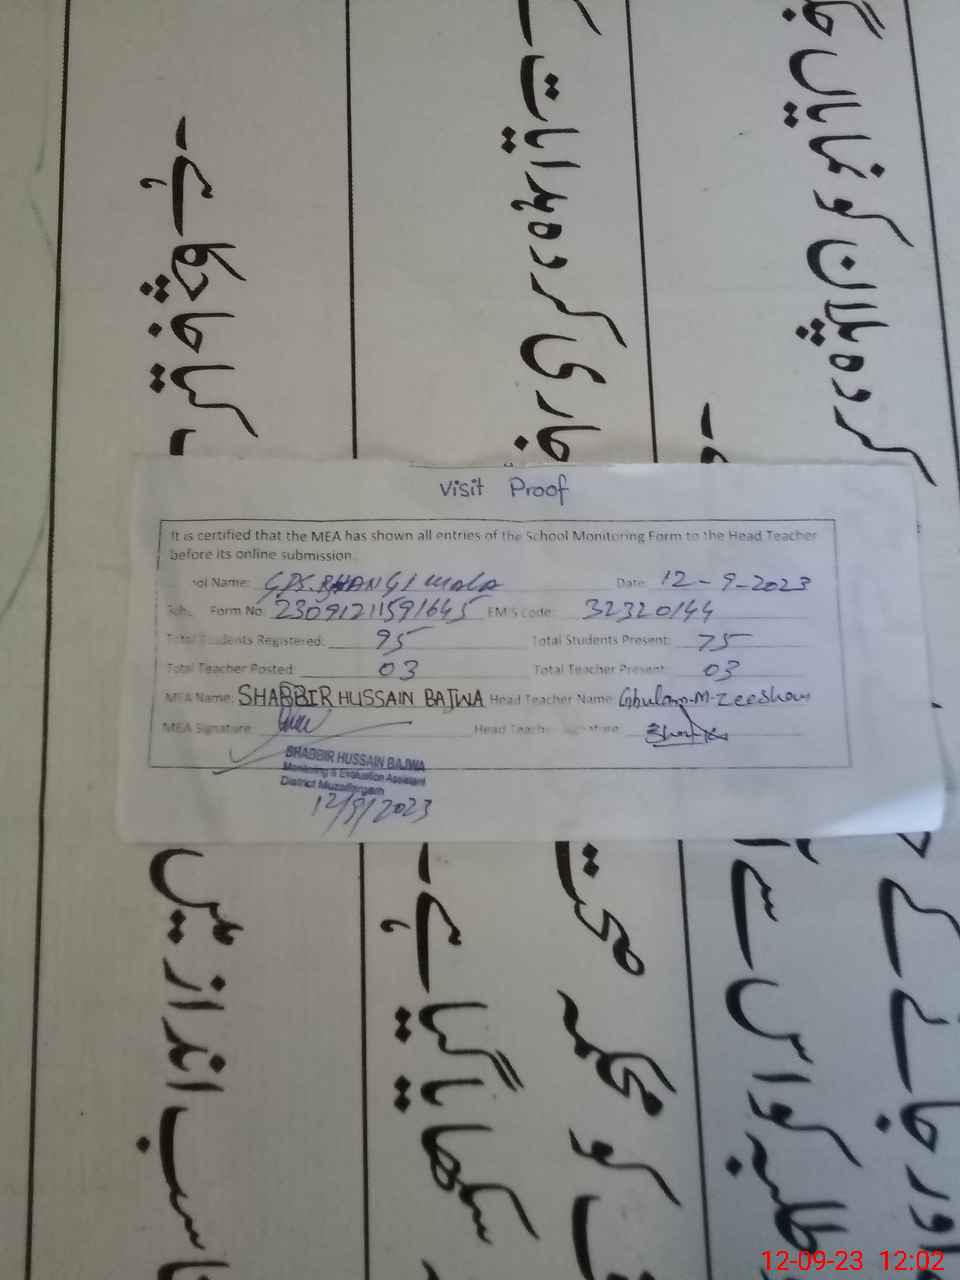 Visit Proof
It is certified that the MEA has shown all entries of the School Monitoring Form to the Head Teacher
before its online submission.
ool Name: GPS. BHANGI wala Date: 12-9-2023
Form No: 23091211591645 EMIS Code: 32320144
Total Students Registered: 95 Total Students Present: 75
Total Teacher Posted: 03 Total Teacher Present: 03
MEA Name: SHABBIR HUSSAIN BAJWA Head Teacher Name: Ghulam-M-Zeeshan
MEA Signature: Head Teacher Signature:
SHABBIR HUSSAIN BAJWA
Monitoring & Evaluation Assistant
District Muzaffargarh
12/9/2023
کردہ پلان کو نمایاں جگہ
جاری کردہ ہدایات
کیا جا چکا ہے۔
اور جانے کے
طلبہ کو اس سے
کو محکمہ صحت
سکھایا گیا ہے۔
اسب انداز میں
12-09-23 12:02